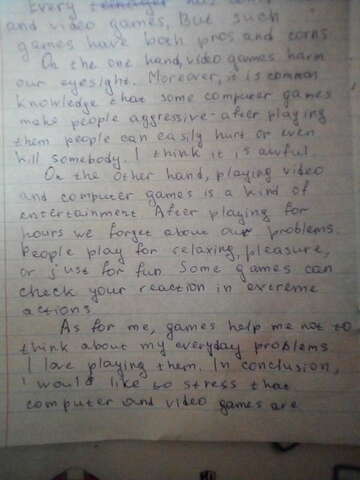 Every teenager has
and video games, But such
games have both pros and corns.
On the one hand, video games harm
our eyesight. Moreover, it is common
knowledge that some computer games
make people aggressive - after playing
them people can easily hurt or even
kill somebody. I think it is awful.
On the other hand, playing video
and computer games is a kind of
entertainment. After playing for
hours we forget about our problems.
People play for relaxing, pleasure,
or just for fun. Some games can
check your reaction in extreme
actions.
As for me, games help me not to
think about my everyday problems.
I love playing them. In conclusion,
I would like to stress that
computer and video games are